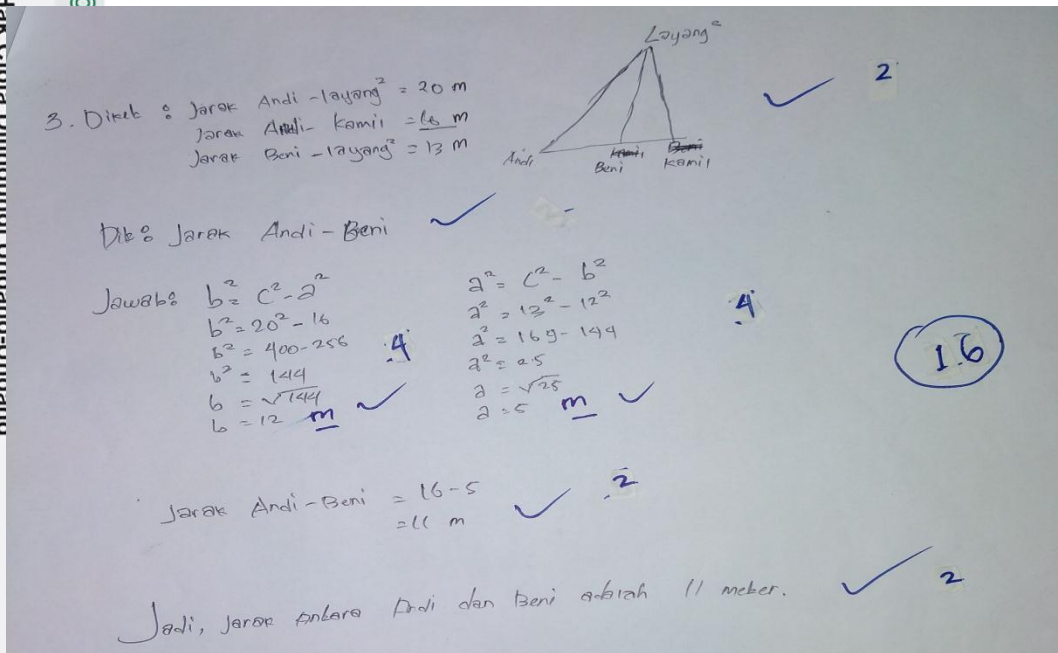 Layang²
2
3. Diket : Jarak Andi - layang² = 20 m
Jarak Andi - Kamil = 16 m
Jarak Beni - layang² = 13 m
Andi
Beni
Kamil
Dit : Jarak Andi - Beni
Jawab : b² = c² - a²
b² = 20² - 16
b² = 400 - 256
b² = 144
b = √144
b = 12 m
4
a² = c² - b²
a² = 13² - 12²
a² = 169 - 144
a² = 25
a = √25
a = 5 m
4
16
Jarak Andi - Beni = 16 - 5
= 11 m
2
Jadi, jarak antara Andi dan Beni adalah 11 meter.
2